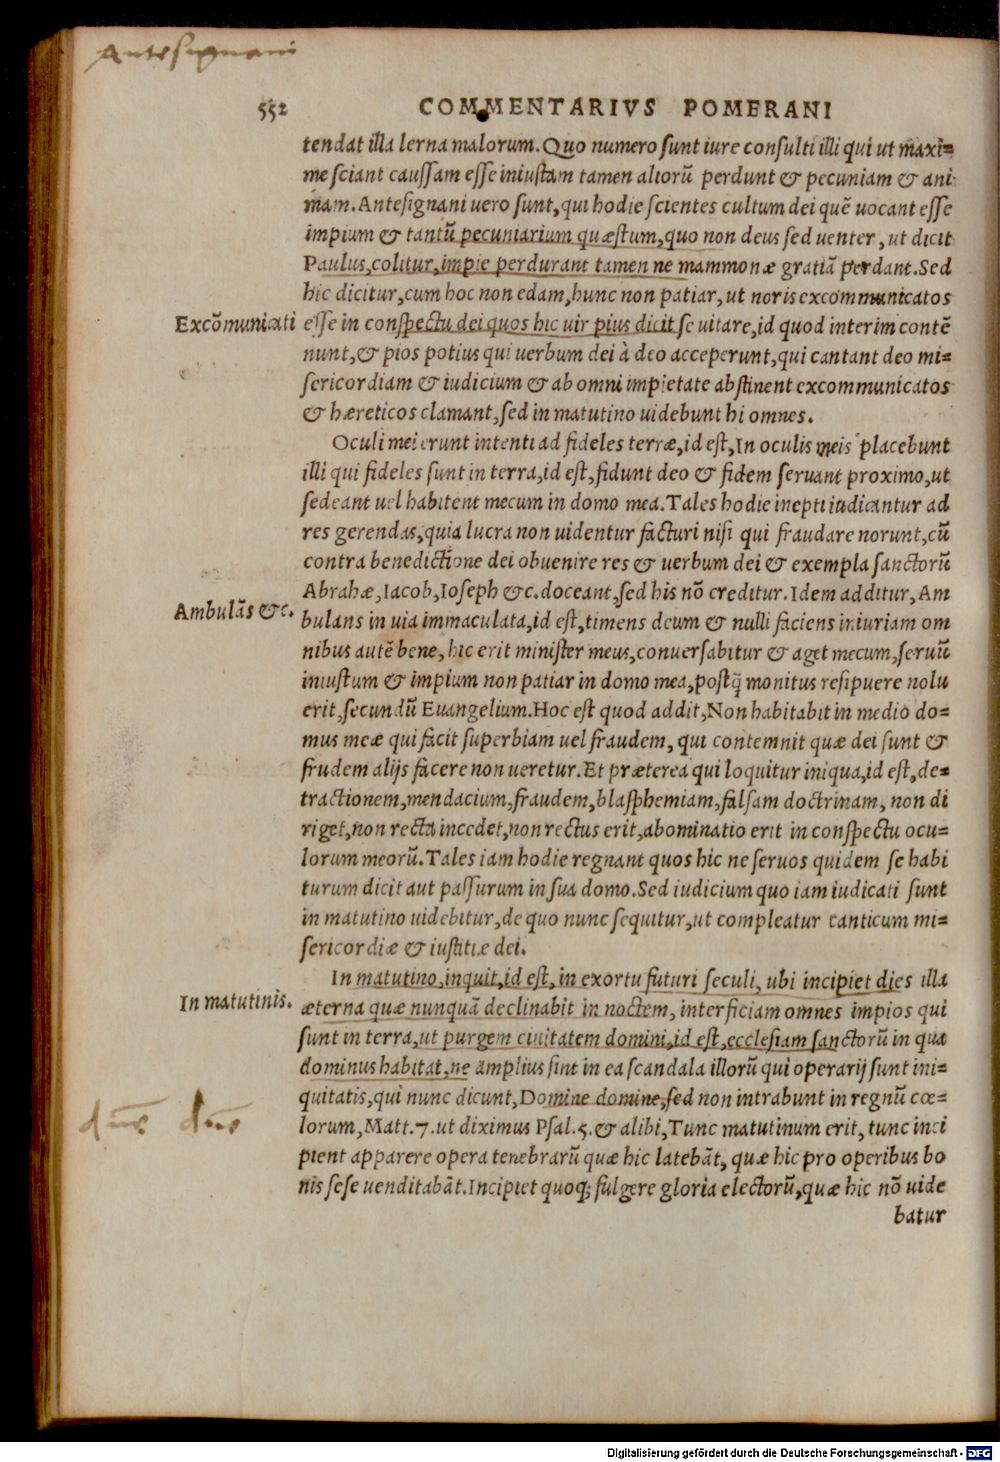 Antesignani
552 COMMENTARIVS POMERANI
tendat illa lerna malorum. Quo numero sunt iure consulti illi qui ut maxi=
me sciant caussam esse iniustam tamen aliorũ perdunt & pecuniam & ani
mam. Antesignani uero sunt, qui hodie scientes cultum dei quẽ uocant esse
impium & tantũ pecuniarium quæstum, quo non deus sed uenter, ut dicit
Paulus, colitur, impie perdurant tamen ne mammonæ gratiã perdant. Sed
hic dicitur, cum hoc non edam, hunc non patiar, ut noris excommunicatos
Excõmunicati
esse in conspectu dei quos hic uir pius dicit se uitare, id quod interim contẽ
nunt, & pios potius qui uerbum dei à deo acceperunt, qui cantant deo mi=
sericordiam & iudicium & ab omni impietate abstinent excommunicatos
& hæreticos clamant, sed in matutino uidebunt hi omnes.
Oculi mei erunt intenti ad fideles terræ, id est, In oculis meis placebunt
illi qui fideles sunt in terra, id est, fidunt deo & fidem seruant proximo, ut
sedeant uel habitent mecum in domo mea. Tales hodie inepti iudicantur ad
res gerendas, quia lucra non uidentur facturi nisi qui fraudare norunt, cũ
contra benedictione dei obuenire res & uerbum dei & exempla sanctorũ
Abrahæ, Iacob, Ioseph &c. doceant, sed his nõ creditur. Idem additur, Am
Ambulãs &c.
bulans in uia immaculata, id est, timens deum & nulli faciens iniuriam om
nibus autẽ bene, hic erit minister meus, conuersabitur & aget mecum, seruũ
iniustum & impium non patiar in domo mea, postq̃ monitus resipuere nolu
erit, secundũ Euangelium. Hoc est quod addit, Non habitabit in medio do=
mus meæ qui facit superbiam uel fraudem, qui contemnit quæ dei sunt &
frudem alijs facere non ueretur. Et præterea qui loquitur iniqua, id est, de=
tractionem, mendacium, fraudem, blasphemiam, falsam doctrinam, non di
riget, non recta incedet, non rectus erit, abominatio erit in conspectu ocu=
lorum meorũ. Tales iam hodie regnant quos hic ne seruos quidem se habi
turum dicit aut passurum in sua domo. Sed iudicium quo iam iudicati sunt
in matutino uidebitur, de quo nunc sequitur, ut compleatur canticum mi=
sericordiæ & iustitiæ dei.
In matutino, inquit, id est, in exortu futuri seculi, ubi incipiet dies illa
In matutinis.
æterna quæ nunquã declinabit in noctem, interficiam omnes impios qui
sunt in terra, ut purgem ciuitatem domini, id est, ecclesiam sanctorũ in qua
dominus habitat, ne amplius sint in ea scandala illorũ qui operarij sunt ini=
quitatis, qui nunc dicunt, Domine domine, sed non intrabunt in regnũ cœ=
dñe dñe
lorum, Matt. 7. ut diximus Psal. 5. & alibi, Tunc matutinum erit, tunc inci
pient apparere opera tenebrarũ quæ hic latebãt, quæ hic pro operibus bo
nis sese uenditabãt. Incipiet quoq; fulgere gloria electorũ, quæ hic nõ uide
batur
Digitalisierung gefördert durch die Deutsche Forschungsgemeinschaft - DFG